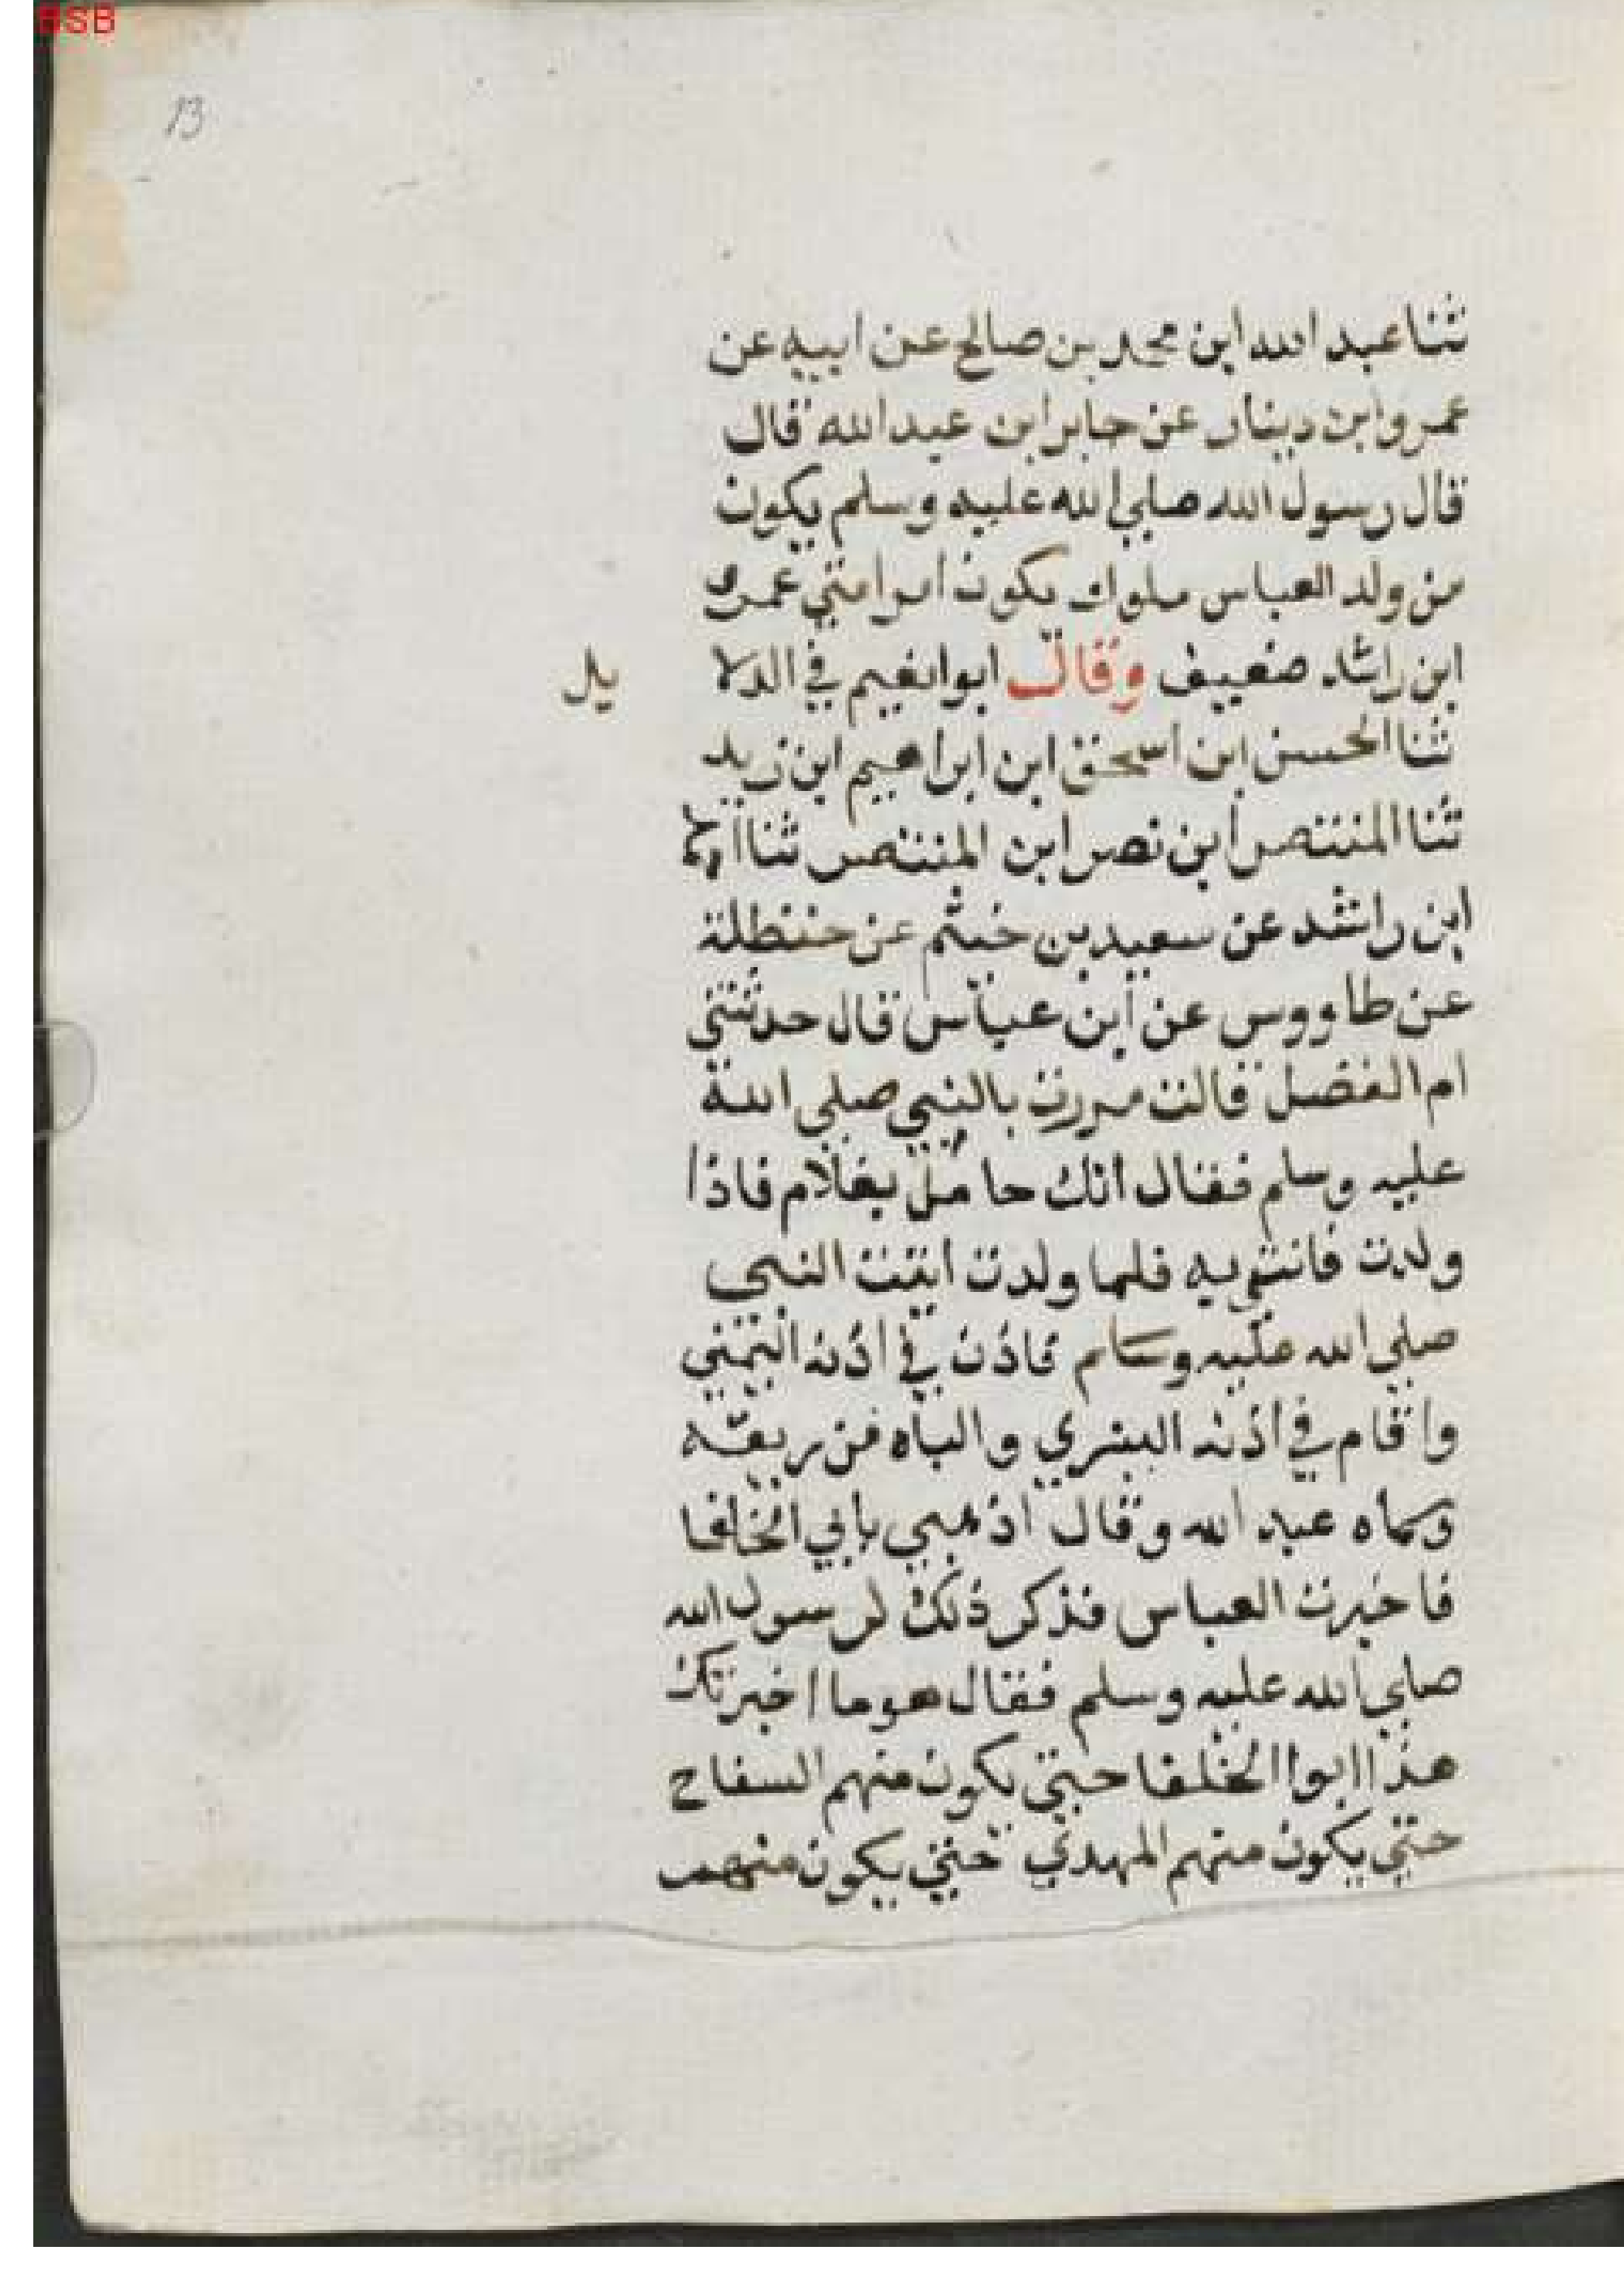 BSB
13
ثنا عبد الله ابن محمد بن صالح عن ابيه عن
عمرو ابن دينار عن جابر ابن عبد الله قال
قال رسول الله صلي الله عليه وسلم يكون
من ولد العباس ملوك يكون امرا امتي عمر
ابن راشد ضعيف وقال ابوا نعيم في الدلا يل
ثنا الحسن ابن اسحق ابن ابراهيم ابن زيد
ثنا المنتصر ابن نصر ابن المنتصر ثنا احمد
ابن راشد عن سعيد بن خثم عن حنظلة
عن طاووس عن ابن عباس قال حدثتني
ام الفضل قالت مررت بالنبي صلي الله
عليه وسلم فقال انك حامل بغلام فاذا
ولدت فاتني به فلما ولدت اتيت النبي
صلي الله عليه وسلم فاذن في اذنه اليمني
واقام في اذنه اليسري والباه من ريقه
وسماه عبد الله وقال اذهبي بابي الخلفا
فاخبرت العباس فذكر ذلك لرسول الله
صلي الله عليه وسلم فقال هو ما اخبرتك
هذا ابوا الخلفا حتي يكون منهم السفاح
حتي يكون منهم المهدي حتي يكون منهم